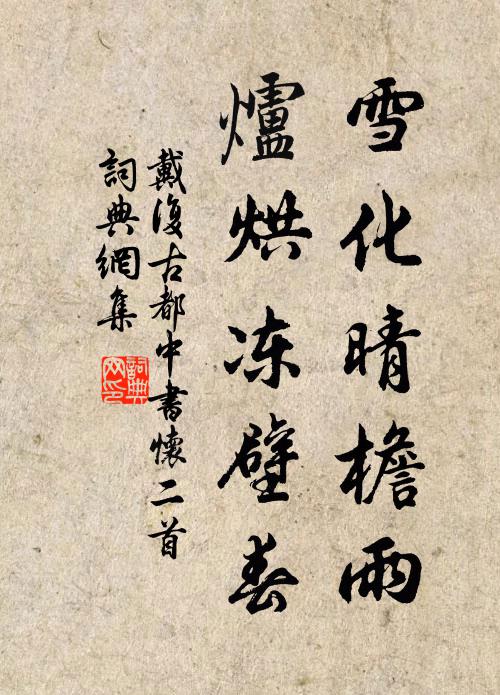 雪化晴檐雨
爐烘冻壁春
戴復古都中書懷二首
詞典網集
詞典網印